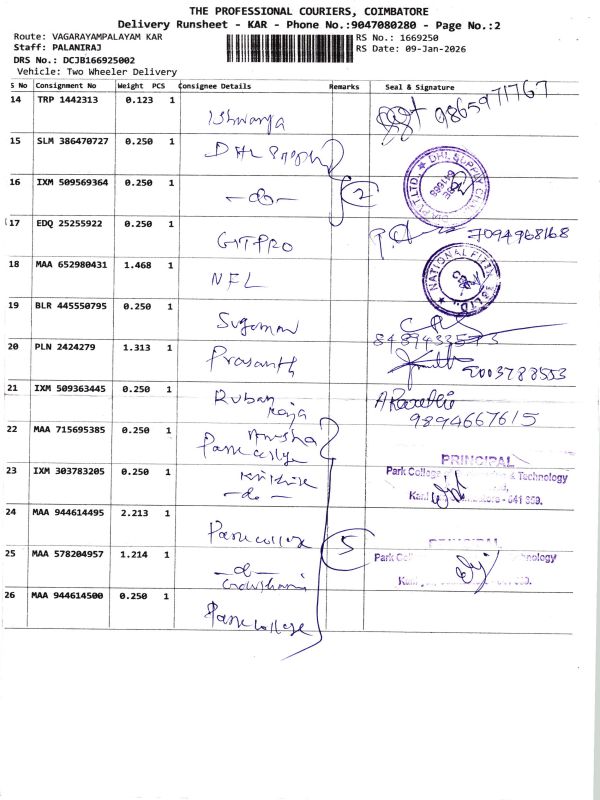 THE PROFESSIONAL COURIERS, COIMBATORE
Delivery Runsheet - KAR - Phone No.:9047080280 - Page No.:2
Route: VAGARAYAMPALAYAM KAR RS No.: 1669250
Staff: PALANIRAJ RS Date: 09-Jan-2026
DRS No.: DCJB166925002
Vehicle: Two Wheeler Delivery
S No Consignment No Weight PCS Consignee Details Remarks Seal & Signature
14 TRP 1442313 0.123 1 Ishwarya 9865971767
15 SLM 386470727 0.250 1 DHL Supply
16 IXM 509569364 0.250 1 -do- 2
DHL SUPPLY
17 EDQ 25255922 0.250 1 GTPRO 7094968168
18 MAA 652980431 1.468 1 NFL
NATIONAL
19 BLR 445550795 0.250 1 Suguman
8489433573
20 PLN 2424279 1.313 1 Prasanth 9003788553
21 IXM 509363445 0.250 1 Ruban Raja
9894667615
22 MAA 715695385 0.250 1 Anusha
Park College
PRINCIPAL
Park College & Technology
641 659.
23 IXM 303783205 0.250 1 -do-
24 MAA 944614495 2.213 1 Park college 5
PRINCIPAL
25 MAA 578204957 1.214 1 -do-
Gowshami
26 MAA 944614500 0.250 1 Park College